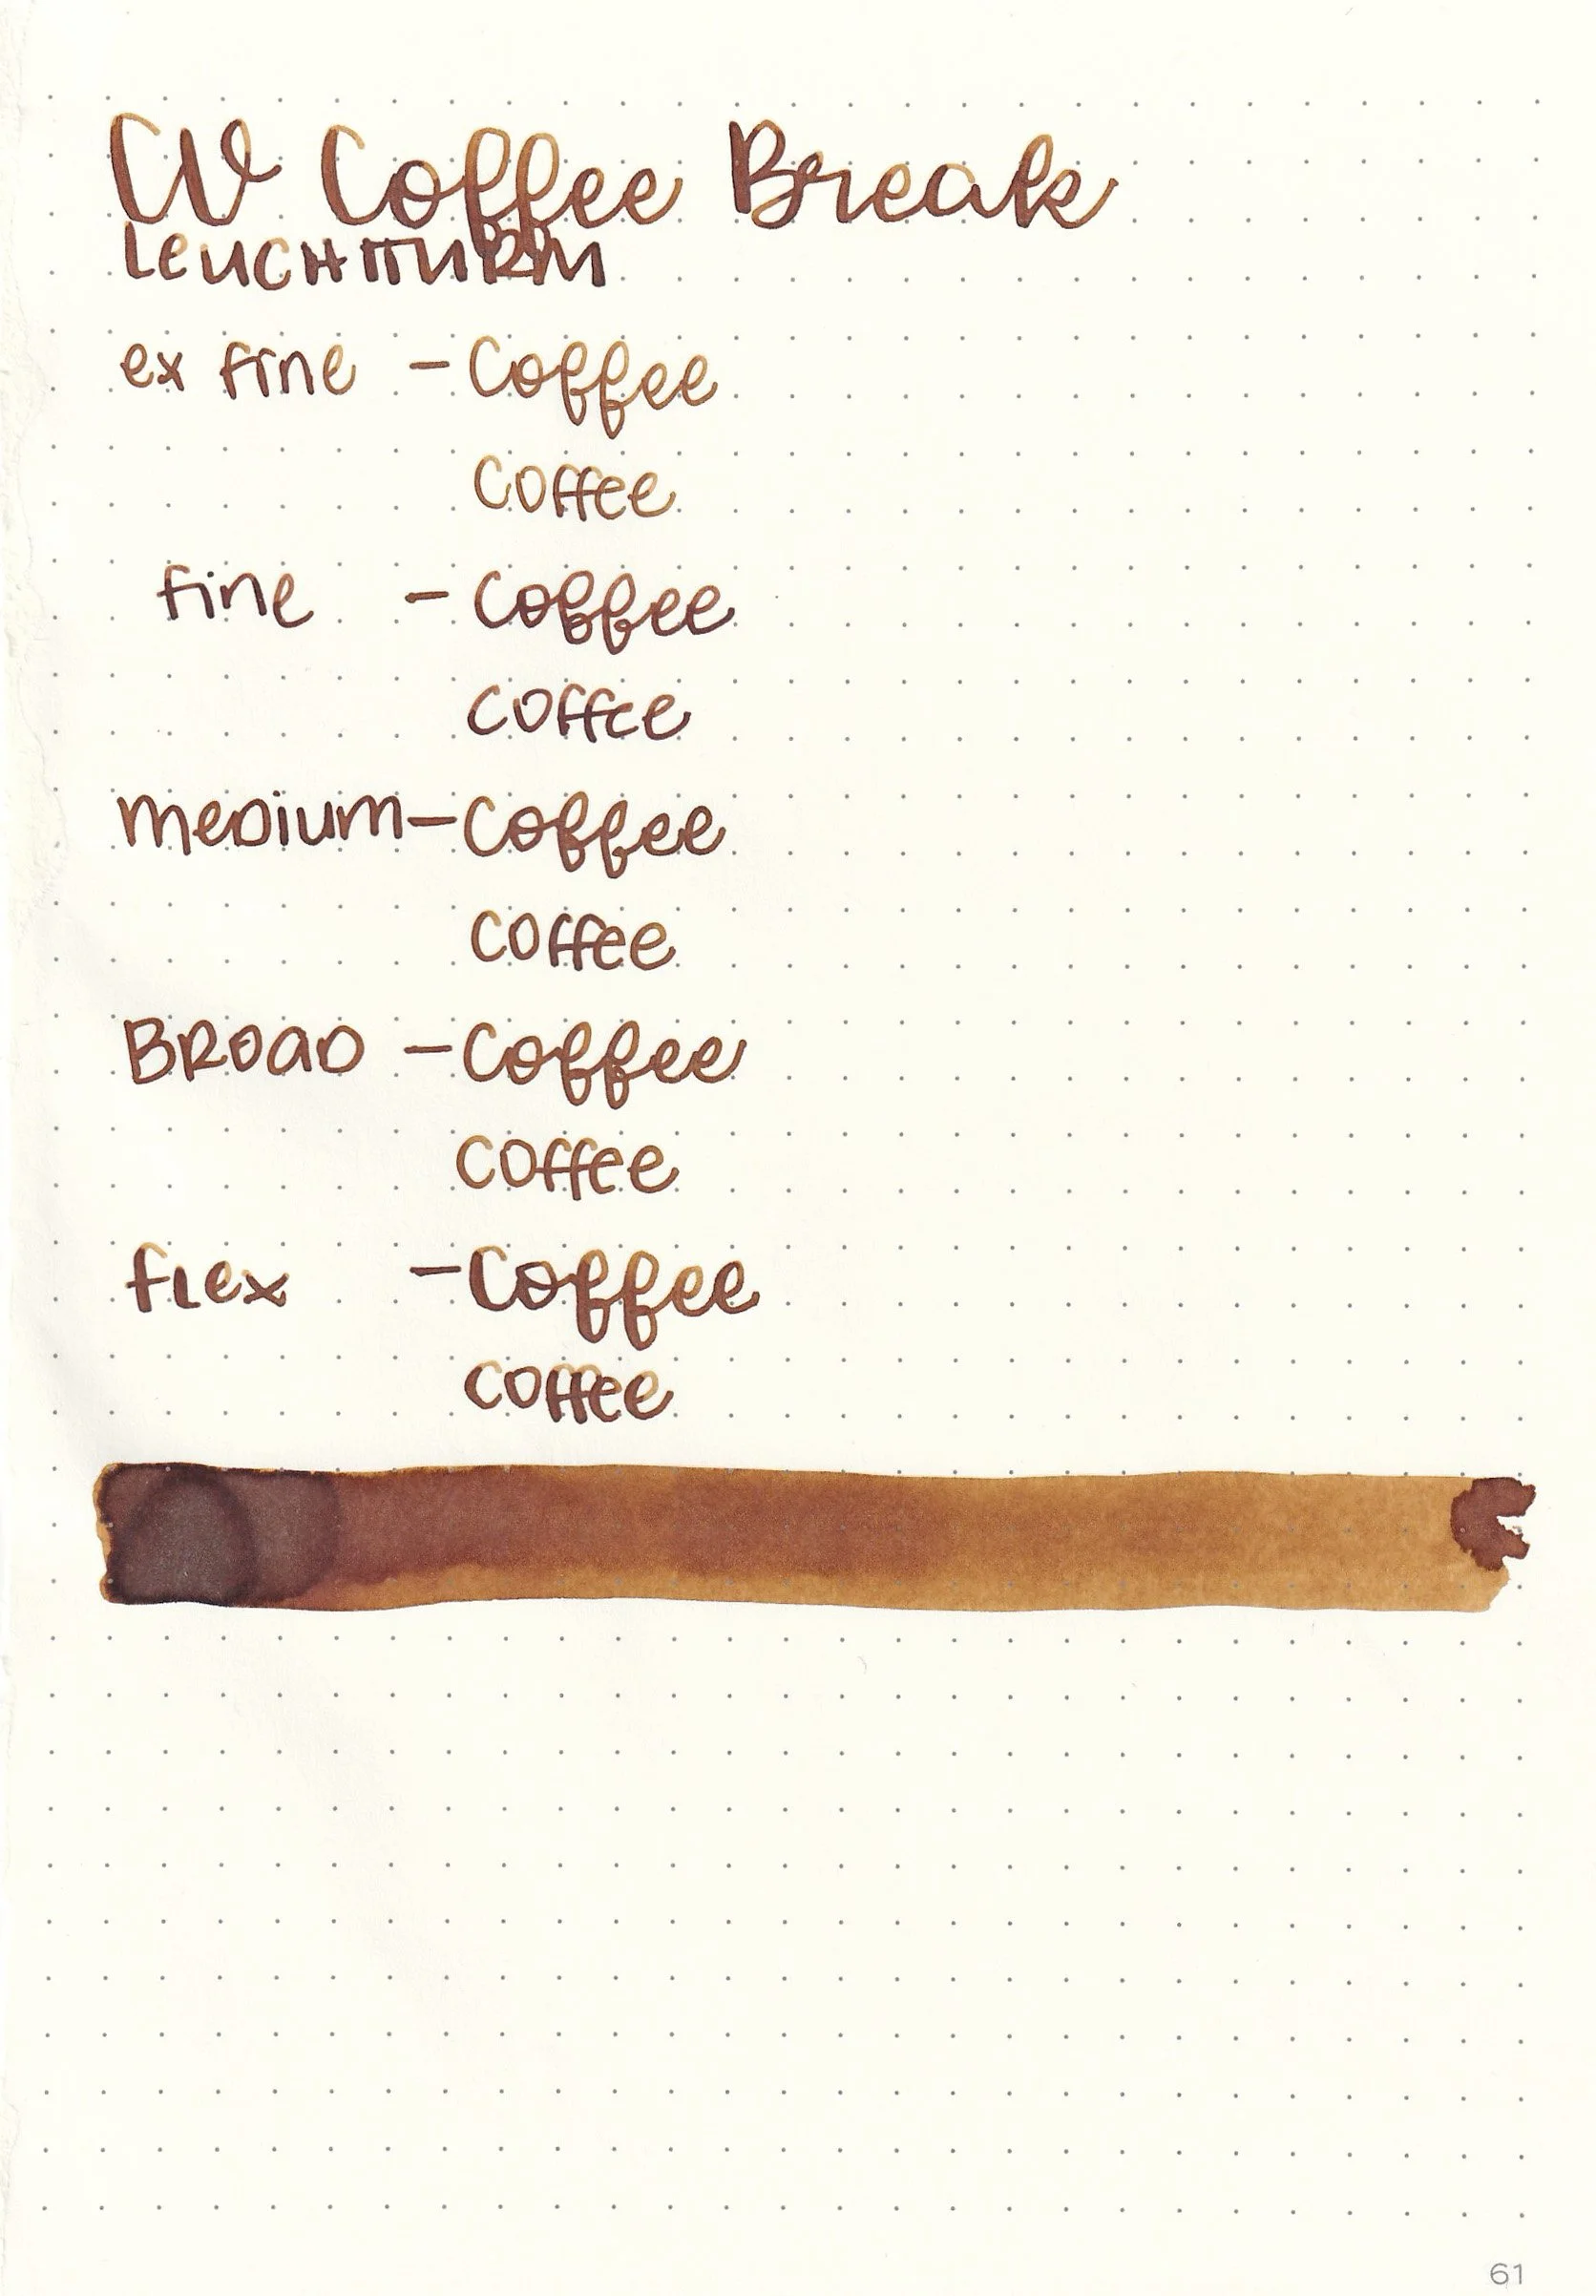 CV Coffee Break
LEUCHTTURM
ex fine - Coffee
coffee
fine - Coffee
coffee
medium - Coffee
coffee
BROAD - Coffee
coffee
flex - Coffee
coffee
61